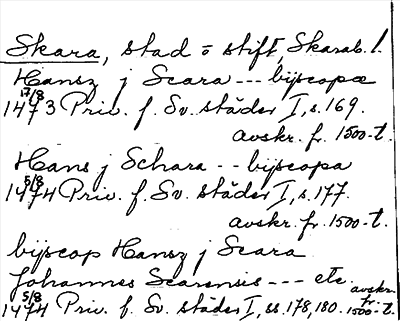 Skara, stad o stift, Skarab. l.
Hansz j Scara --- bijscopæ
17/8 1473 Priv. f. Sv. städer I, s. 169.
avskr. fr. 1500-t.
Hans j Schara -- bijscopa
5/8 1474 Priv. f. Sv. städer I, s. 177.
avskr. fr. 1500-t.
bijscop Hansz j Scara
Johannes Scarensis --- etc.
5/8 1474 Priv. f. Sv. städer I, ss. 178, 180. avskr. fr. 1500-t.